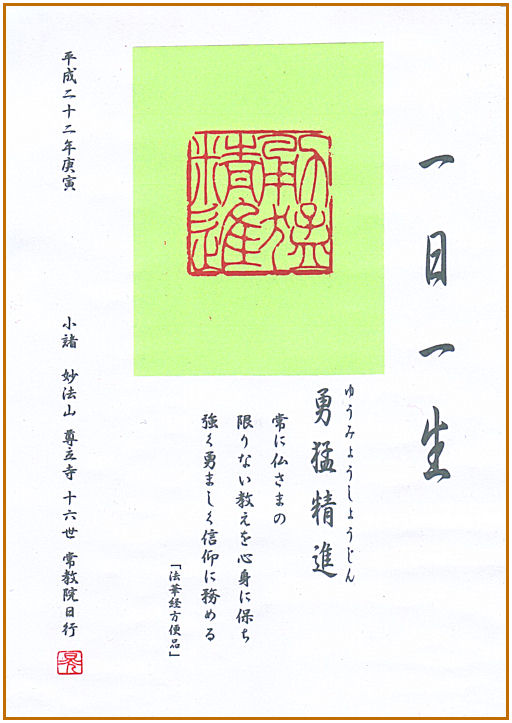 一日一生
勇猛精進
ゆうみょうしょうじん
勇猛精進
常に仏さまの
限りない教えを心身に保ち
強く勇ましく信仰に務める
「法華経方便品」
平成二十二年庚寅
小諸 妙法山 尊立寺 十六世 常教院日行